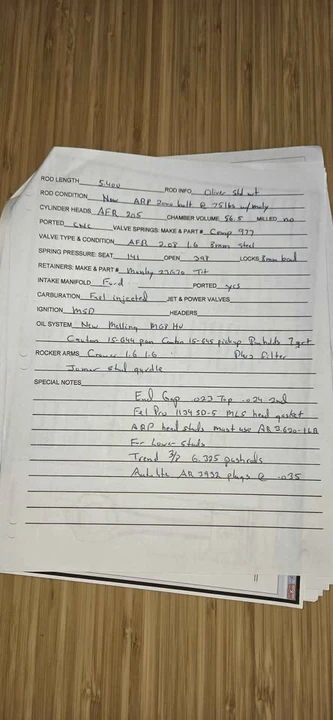 ROD LENGTH 5.400 ROD INFO Oliver Std wt
ROD CONDITION New ARP 2000 bolt @ 75 lbs w/moly
CYLINDER HEADS AFR 205 CHAMBER VOLUME 56.5 MILLED no
PORTED CNC VALVE SPRINGS: MAKE & PART # Comp 977
VALVE TYPE & CONDITION AFR 2.08 1.6 8mm steel
SPRING PRESSURE: SEAT 141 OPEN 398 LOCKS 8mm bead
RETAINERS: MAKE & PART # Manley Tit
INTAKE MANIFOLD Ford PORTED yes
CARBURATION Fuel injected JET & POWER VALVES
IGNITION MSD HEADERS
OIL SYSTEM New Melling HV
Canton 15-644 pan Canton 15-645 pickup Pan holds 7 qrt
ROCKER ARMS Crower 1.6 1.6 Plus filter
stud girdle
SPECIAL NOTES
End Gap .023 Top .024 2nd
Fel Pro 1134 SD-5 MLS head gasket
ARP head studs must use AR 3.670-1LB
For Lower Studs
Trend 3/8 6.325 pushrods
Autolite AR 3932 plugs @ .035